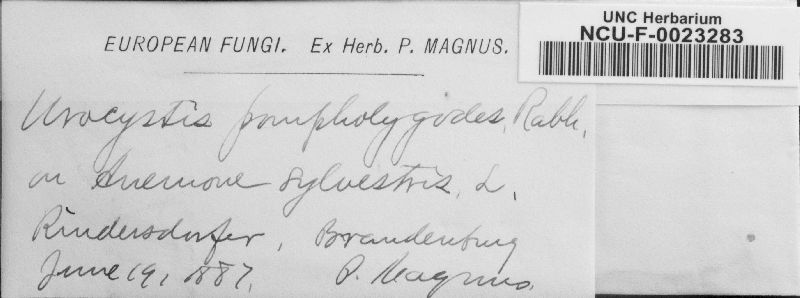 UNC Herbarium
NCU-F-0023283
EUROPEAN FUNGI. Ex Herb. P. MAGNUS.
Urocystis pompholygodes, Rabh.
on Anemone sylvestris, L.
Rindersdorfer, Brandenburg
June 19, 1887. P. Magnus.